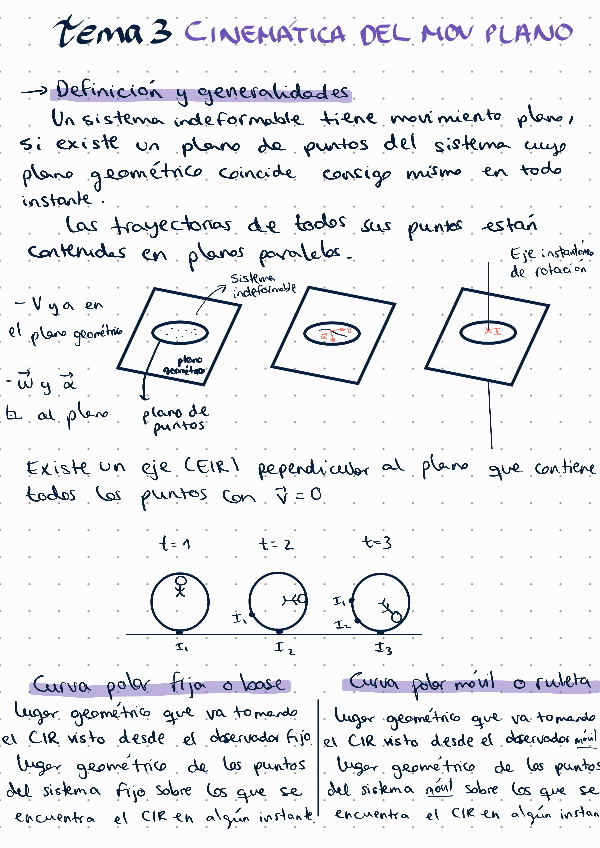 tema 3 CINEMÁTICA DEL MOV PLANO
→ Definición y generalidades
Un sistema indeformable tiene movimiento plano,
si existe un plano de puntos del sistema cuyo
plano geométrico coincide consigo mismo en todo
instante.
Las trayectorias de todos sus puntos están
contenidas en planos paralelos.
Eje instantáneo
de rotación
Sistema
indeformable
- V y a en
el plano geométrico
plano
geométrico
I
- ω⃗ y α⃗
al plano
plano de
puntos
Existe un eje (EIR) pependicular al plano que contiene
todos los puntos con v⃗ = 0
t=1 t=2 t=3
I₁ I₁ I₂
I₁ I₂ I₃
Curva polar fija o base
lugar geométrico que va tomando
el CIR visto desde el observador fijo
lugar geométrico de los puntos
del sistema fijo sobre los que se
encuentra el CIR en algún instante.
Curva polar móvil o ruleta
lugar geométrico que va tomando
el CIR visto desde el observador móvil
lugar geométrico de los puntos
del sistema móvil sobre los que se
encuentra el CIR en algún instan